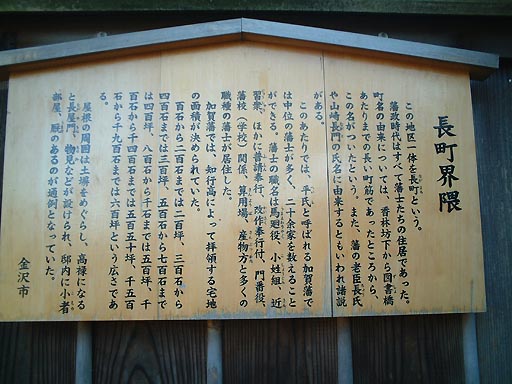 長町界隈
この地区一体を長町という。
藩政時代はすべて藩士たちの住居であった。
町名の由来については、香林坊下から図書橋
あたりまでの長い町筋であったところから、
この名がついたという。また、藩の老臣長氏
や山崎長門の氏名に由来するともいわれ諸説
がある。
このあたりでは、平氏と呼ばれる加賀藩で
は中位の藩士が多く、二十余家を数えること
ができる。藩士の職名は馬廻役、小姓組、近
習衆、ほかに普請奉行、改作奉行付、門番役、
藩校(学校)関係、算用場、産物方と多くの
職種の藩士が居住した。
加賀藩では、知行高によって拝領する宅地
の面積が決められていた。
百石から二百石までは二百坪、三百石から
四百石までは三百坪、五百石から七百石まで
は四百坪、八百石から千石までは五百坪、千
百石から千四百石までは五百五十坪、千五百
石から千九百石までは六百坪という広さであ
る。
屋根の周囲は土塀をめぐらし、高禄になる
と長屋門、物見などが設けられ、邸内に小者
部屋、厩のあるのが通例となっていた。
金沢市